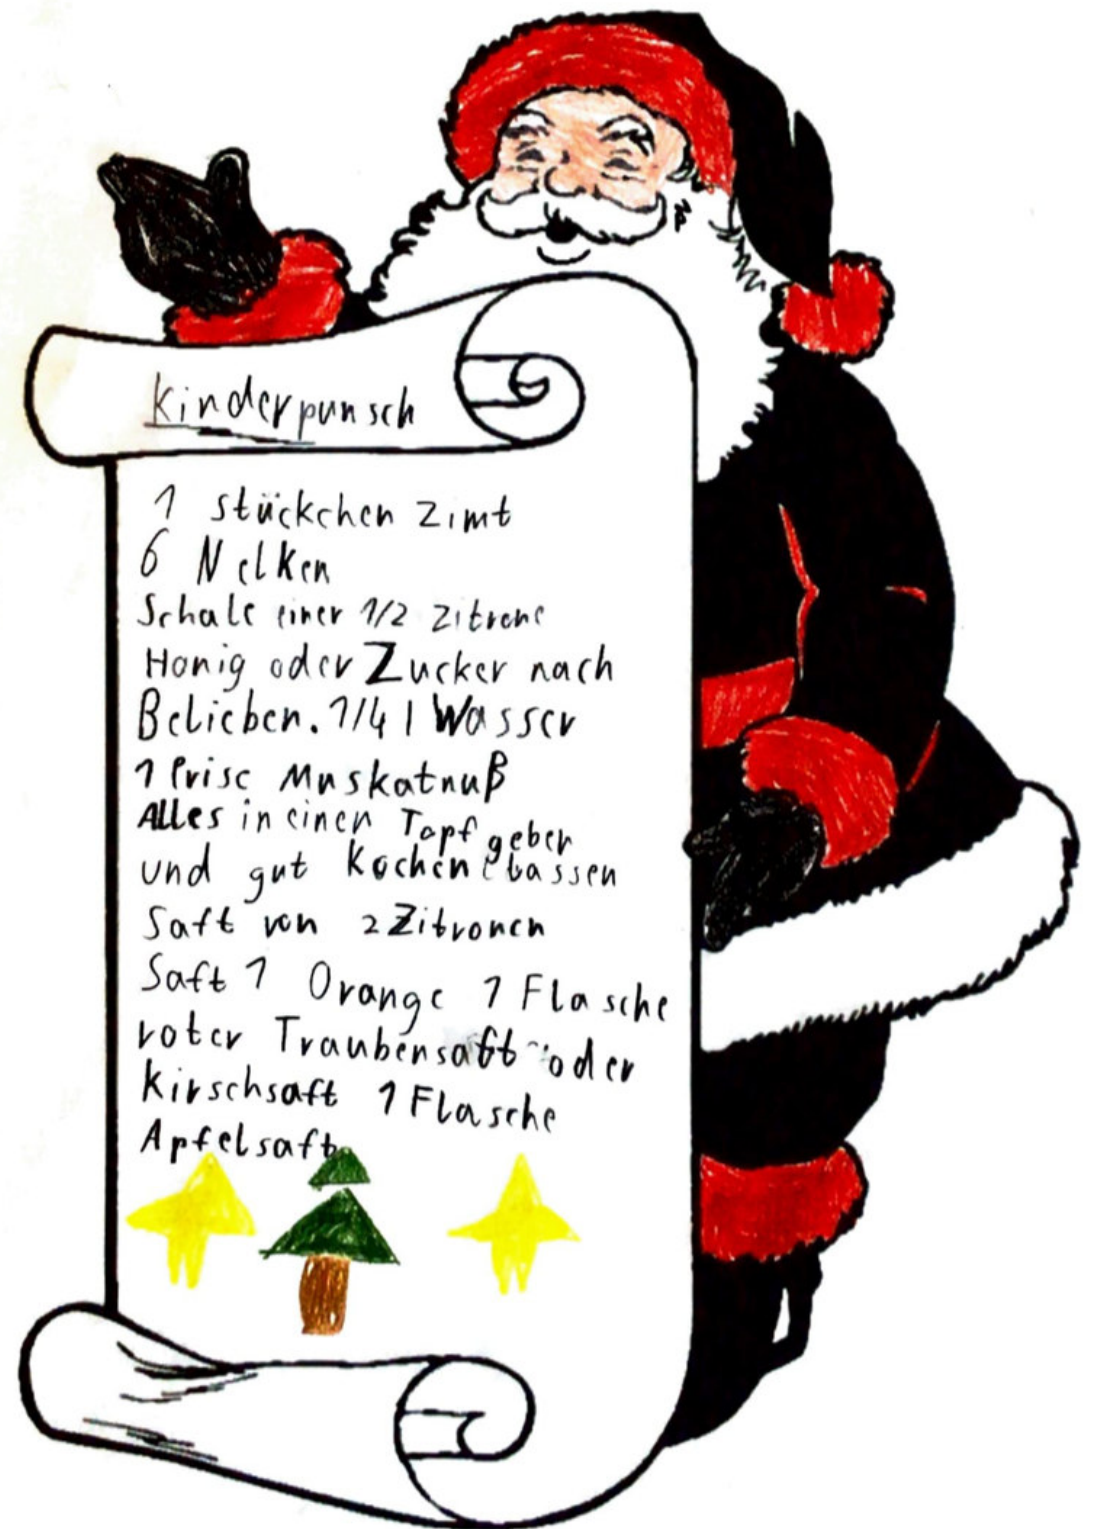 Kinderpunsch
1 Stückchen Zimt
6 Nelken
Schale einer 1/2 Zitrone
Honig oder Zucker nach
Belieben. 1/4 l Wasser
1 Prise Muskatnuß
Alles in einen Topf geben
und gut Kochen lassen
Saft von 2 Zitronen
Saft 1 Orange 1 Flasche
roter Traubensaft oder
Kirschsaft 1 Flasche
Apfelsaft